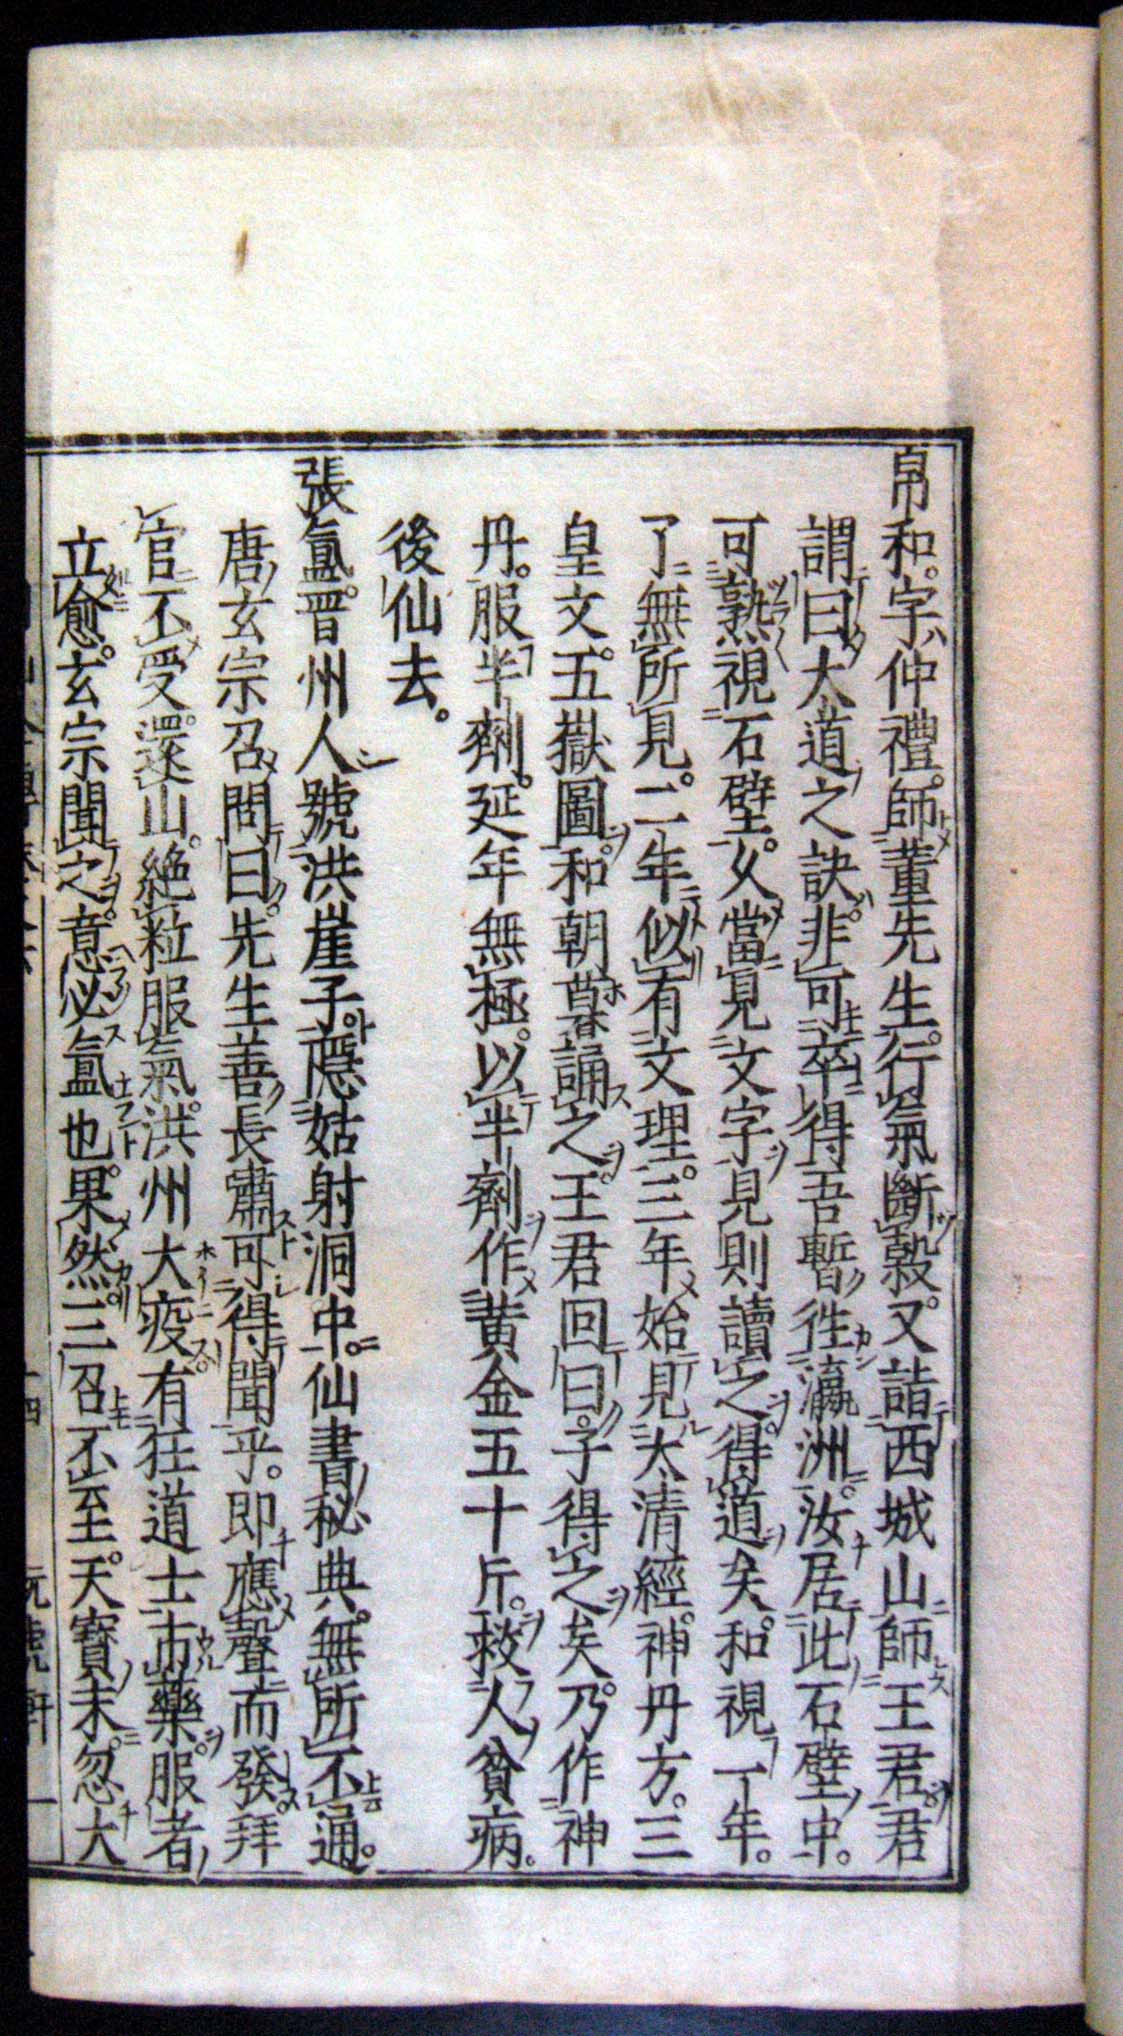 帛和。字仲禮。師董先生。行氣斷穀。又詣西城山師王君。君
謂曰大道之訣。非可卒得吾暫徃瀛洲。汝居此石壁中。
可熟視石壁。久當見文字見則讀之。得道矣。和視一年。
了無所見。二年似有文理。三年始見太清經。神丹方。三
皇文。五嶽圖。和朝暮誦之。王君回曰。子得之矣。乃作神
丹。服半劑。延年無極。以半劑作黃金五十斤。救人貧病。
後仙去。
張氳。晋州人號洪崖子。隱姑射洞中。仙書秘典。無所不通。
唐玄宗召問曰。先生善長嘯可得聞乎。即應聲而發。拜
官不受。還山。絶粒服氣。洪州大疫。有狂道士市藥。服者
立愈。玄宗聞之。意必氳也。果然。三召不至。天寳末。忽大